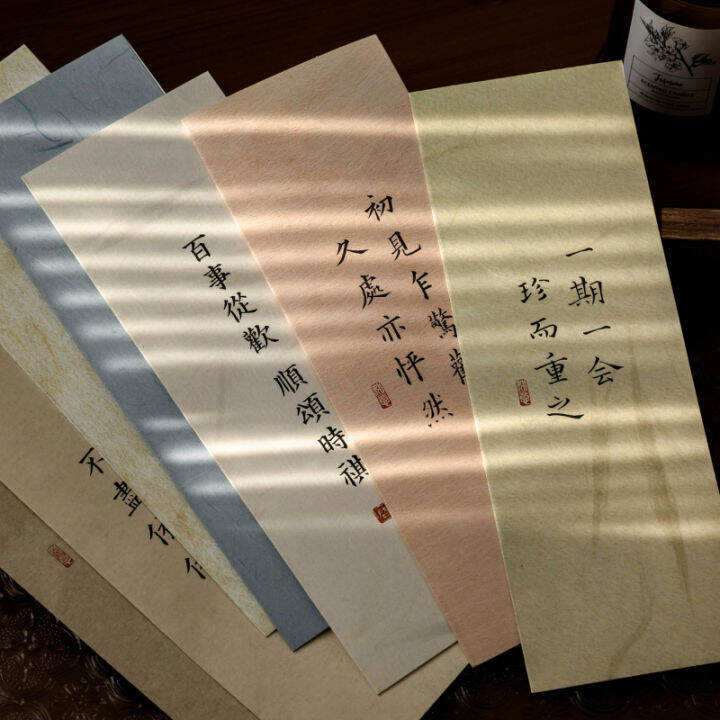 一期一会
珍而重之
初見乍驚歡
久處亦怦然
百事從歡 順頌時祺
不盡
SCENTED CANDLE